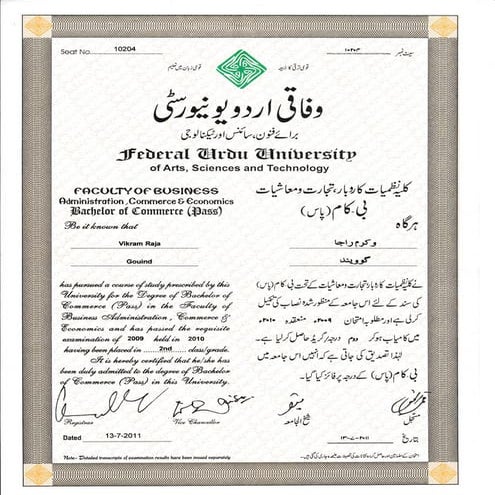 Seat No. 10204
۱۰۲۰۴ سیٹ نمبر
وفاقی اردو یونیورسٹی
برائے فنون، سائنس اور ٹیکنالوجی
Federal Urdu University
of Arts, Sciences and Technology
FACULTY OF BUSINESS
Administration, Commerce & Economics
Bachelor of Commerce (Pass)
Be it known that
Vikram Raja
Gouind
has pursued a course of study prescribed by this
University for the Degree of Bachelor of
Commerce (Pass) in the Faculty of
Business Administration, Commerce &
Economics and has passed the requisite
examination of 2009 held in 2010
having been placed in 2nd class/grade.
It is hereby certified that he/she has
been duly admitted to the degree of Bachelor
of Commerce (Pass) in this University.
Registrar
Vice Chancellor
Dated 13-7-2011
Note:- Detailed transcripts of examination results have been issued separately
کلیہ نظمیات کاروبار، تجارت و معاشیات
بی۔کام (پاس)
ہرگاہ
وکرم راجا
گوویند
نے کلیہ نظمیات کاروبار تجارت و معاشیات کے تحت بی کام (پاس)
کی سند کے لئے اس جامعہ کے منظور شدہ نصاب کی تکمیل
کرلی ہے اور مطلوبہ امتحان ۲۰۰۹ منعقدہ ۲۰۱۰
میں کامیاب ہو کر دوم درجہ/گریڈ حاصل کر لیا ہے۔
لہٰذا تصدیق کی جاتی ہے کہ انہیں اس جامعہ میں
بی کام (پاس) کے درجہ پر فائز کیا گیا۔
شیخ الجامعہ
مسجل
بتاریخ ۱۳-۷-۲۰۱۱